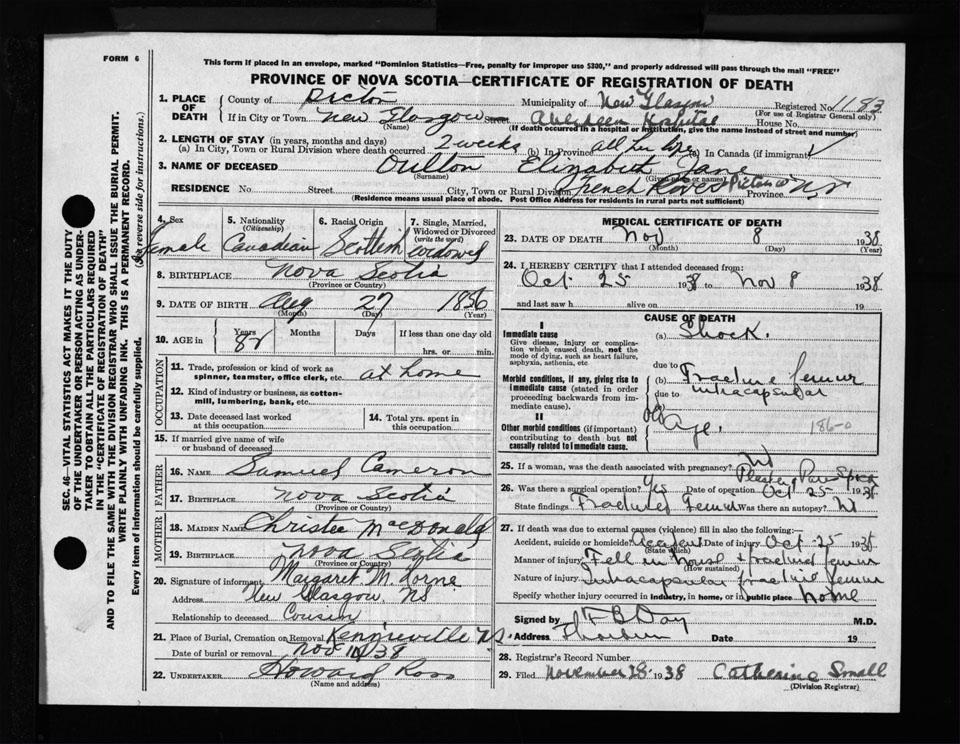 FORM 6
This form if placed in an envelope, marked "Dominion Statistics—Free, penalty for improper use $300," and properly addressed will pass through the mail "FREE"
PROVINCE OF NOVA SCOTIA—CERTIFICATE OF REGISTRATION OF DEATH
1. PLACE OF DEATH
County of Pictou Municipality of New Glasgow Registered No. 1183
(For use of Registrar General only)
If in City or Town New Glasgow Street Aberdeen Hospital House No.
(Name) (If death occurred in a hospital or institution, give the name instead of street and number)
2. LENGTH OF STAY (in years, months and days)
(a) In City, Town or Rural Division where death occurred 2 weeks (b) In Province all her life (c) In Canada (if immigrant)
3. NAME OF DECEASED Oulton Elizabeth Jane
(Surname) (Given name or names)
RESIDENCE No. Street City, Town or Rural Division French River Pictou Co Province NS
(Residence means usual place of abode. Post Office Address for residents in rural parts not sufficient)
4. Sex Female
5. Nationality (Citizenship) Canadian
6. Racial Origin Scottish
7. Single, Married, Widowed or Divorced (write the word) Widowed
8. BIRTHPLACE Nova Scotia
(Province or Country)
9. DATE OF BIRTH Aug 27 1856
(Month) (Day) (Year)
10. AGE in Years 82 Months Days If less than one day old
hrs. or min.
OCCUPATION
11. Trade, profession or kind of work as spinner, teamster, office clerk, etc. at home
12. Kind of industry or business, as cotton-mill, lumbering, bank, etc.
13. Date deceased last worked at this occupation
14. Total yrs. spent in this occupation
15. If married give name of wife or husband of deceased
FATHER
16. NAME Samuel Cameron
17. BIRTHPLACE Nova Scotia
MOTHER
18. MAIDEN NAME Christie MacDonald
19. BIRTHPLACE Nova Scotia
(Province or Country)
20. Signature of informant Margaret M. Lorne
Address New Glasgow NS
Relationship to deceased Cousin
21. Place of Burial, Cremation or Removal N.S.
Date of burial or removal Nov 38
22. UNDERTAKER Howard Ross
(Name and address)
MEDICAL CERTIFICATE OF DEATH
23. DATE OF DEATH Nov 8 1938
(Month) (Day) (Year)
24. I HEREBY CERTIFY that I attended deceased from:
Oct 25 1938 to Nov 8 1938
and last saw h alive on 19
CAUSE OF DEATH
I
Immediate cause
Give disease, injury or complication which caused death, not the mode of dying, such as heart failure, asphyxia, asthenia, etc
(a) Shock.
due to
Morbid conditions, if any, giving rise to immediate cause (stated in order proceeding backwards from immediate cause).
(b) Fracture femur
due to intracapsular
II
Other morbid conditions (if important) contributing to death but not causally related to immediate cause.
Old Age. 186-0
25. If a woman, was the death associated with pregnancy? No
26. Was there a surgical operation? Yes Date of operation Oct 25 1938
Plaster Spica
State findings Fractured Femur Was there an autopsy? No
27. If death was due to external causes (violence) fill in also the following:—
Accident, suicide or homicide? Accident Date of injury Oct 25 1938
(State which)
Manner of injury Fell in house & fractured femur
(How sustained)
Nature of injury Intracapsular fracture femur
Specify whether injury occurred in industry, in home, or in public place home
Signed by F B Day M.D.
Address Thorburn Date 19
28. Registrar's Record Number
29. Filed November 28 1938 Catherine Small
(Division Registrar)
SEC. 46—VITAL STATISTICS ACT MAKES IT THE DUTY
OF THE UNDERTAKER OR PERSON ACTING AS UNDER-
TAKER TO OBTAIN ALL THE PARTICULARS REQUIRED
IN THE "CERTIFICATE OF REGISTRATION OF DEATH"
AND TO FILE THE SAME WITH THE DIVISION REGISTRAR WHO SHALL ISSUE THE BURIAL PERMIT.
WRITE PLAINLY WITH UNFADING INK. THIS IS A PERMANENT RECORD.
Every item of information should be carefully supplied. (See reverse side for instructions.)